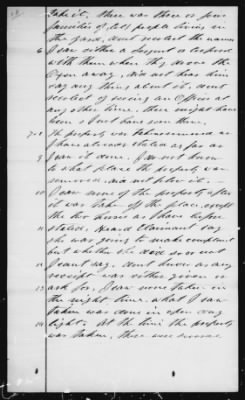 take it. there was three or four
families of Col'd people living in
the yard, dont recollect the names
6 I saw either a Sergeant or Corporal
with them when they drove the
Oxen away, did not hear him
say any thing about it, dont
recollect of seeing an Officer at
any other time, there might have
been & I not have seen them.
7-8 The property was taken removed as
I have already stated as far as
9 I saw it done. I do not know
to what place the property was
removed, did not follow it.
10 I saw none of the property after
it was taken off the place, except
the two horses as I have before
11 stated, Heard Claimant say
she was going to make complaint
but whether she did so or not
12 I cant say, dont know as any
receipt was either given or
13 ask for, I saw none taken in
the night time, what I saw
taken was done in open day
14 light. At the time the property
was taken, there were several